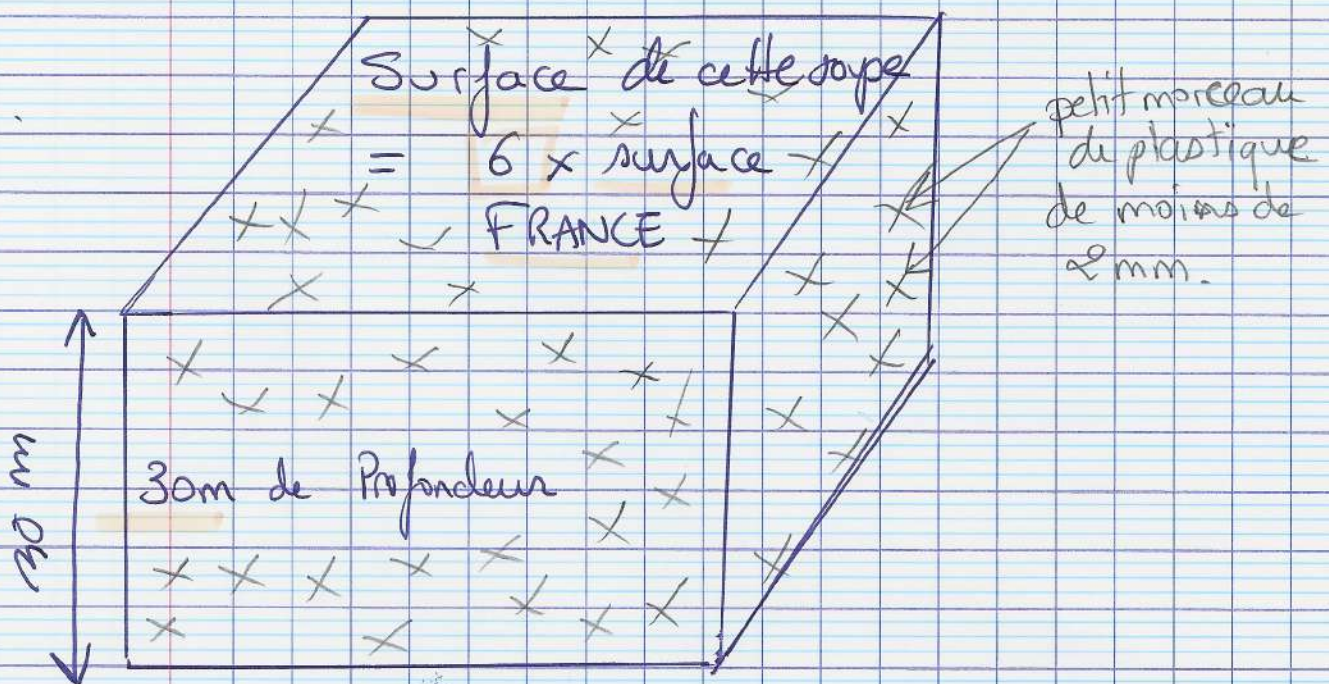 Surface de cette soupe
= 6 x surface
FRANCE
petit morceau
de plastique
de moins de
2 mm.
30 m
30m de Profondeur